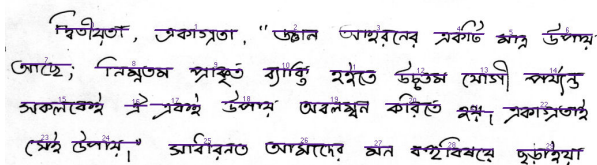 দ্বিতীয়তা, একাগ্রতা, "জ্ঞান আহরনের একটি মাত্র উপায়
আছে; নিম্নতম প্রাকৃত ব্যাক্তি হইতে উচ্চতম যোগী পর্যন্ত
সকলকেই ঐ একই উপায় অবলম্বন করিতে হয়। একাগ্রতাই
সেই উপায়।" সাধারনত আমাদের মন বহুবিষয়ে ছড়াইয়া